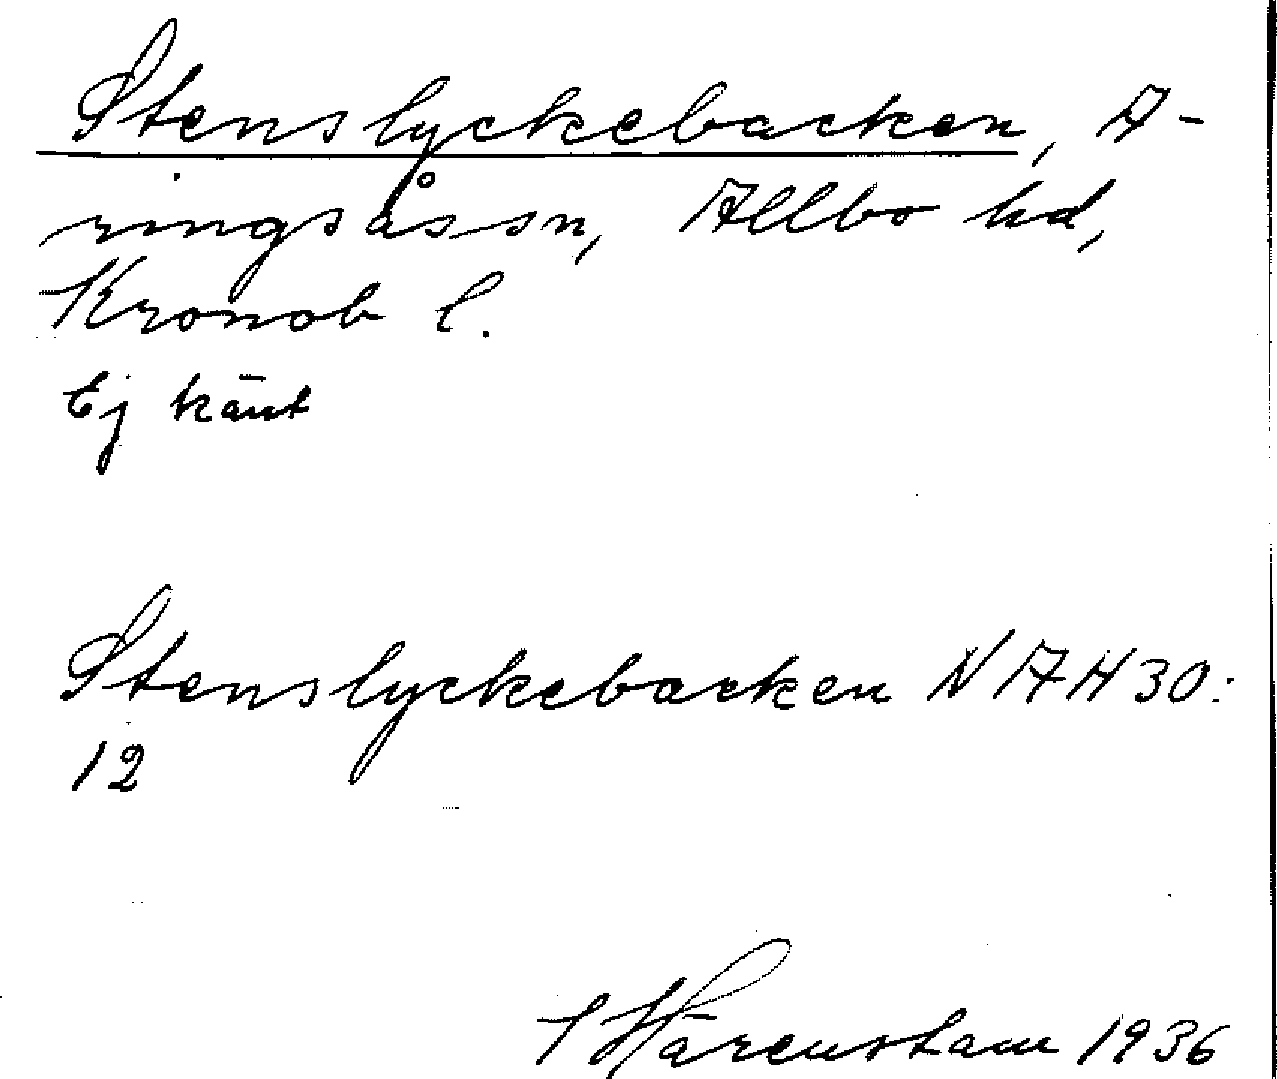 Stenslyckebacken, A-
ringsås sn, Allbo hd,
Kronob l.
Ej känt
Stenslyckebacken N17H30:
12
Härenstam 1936